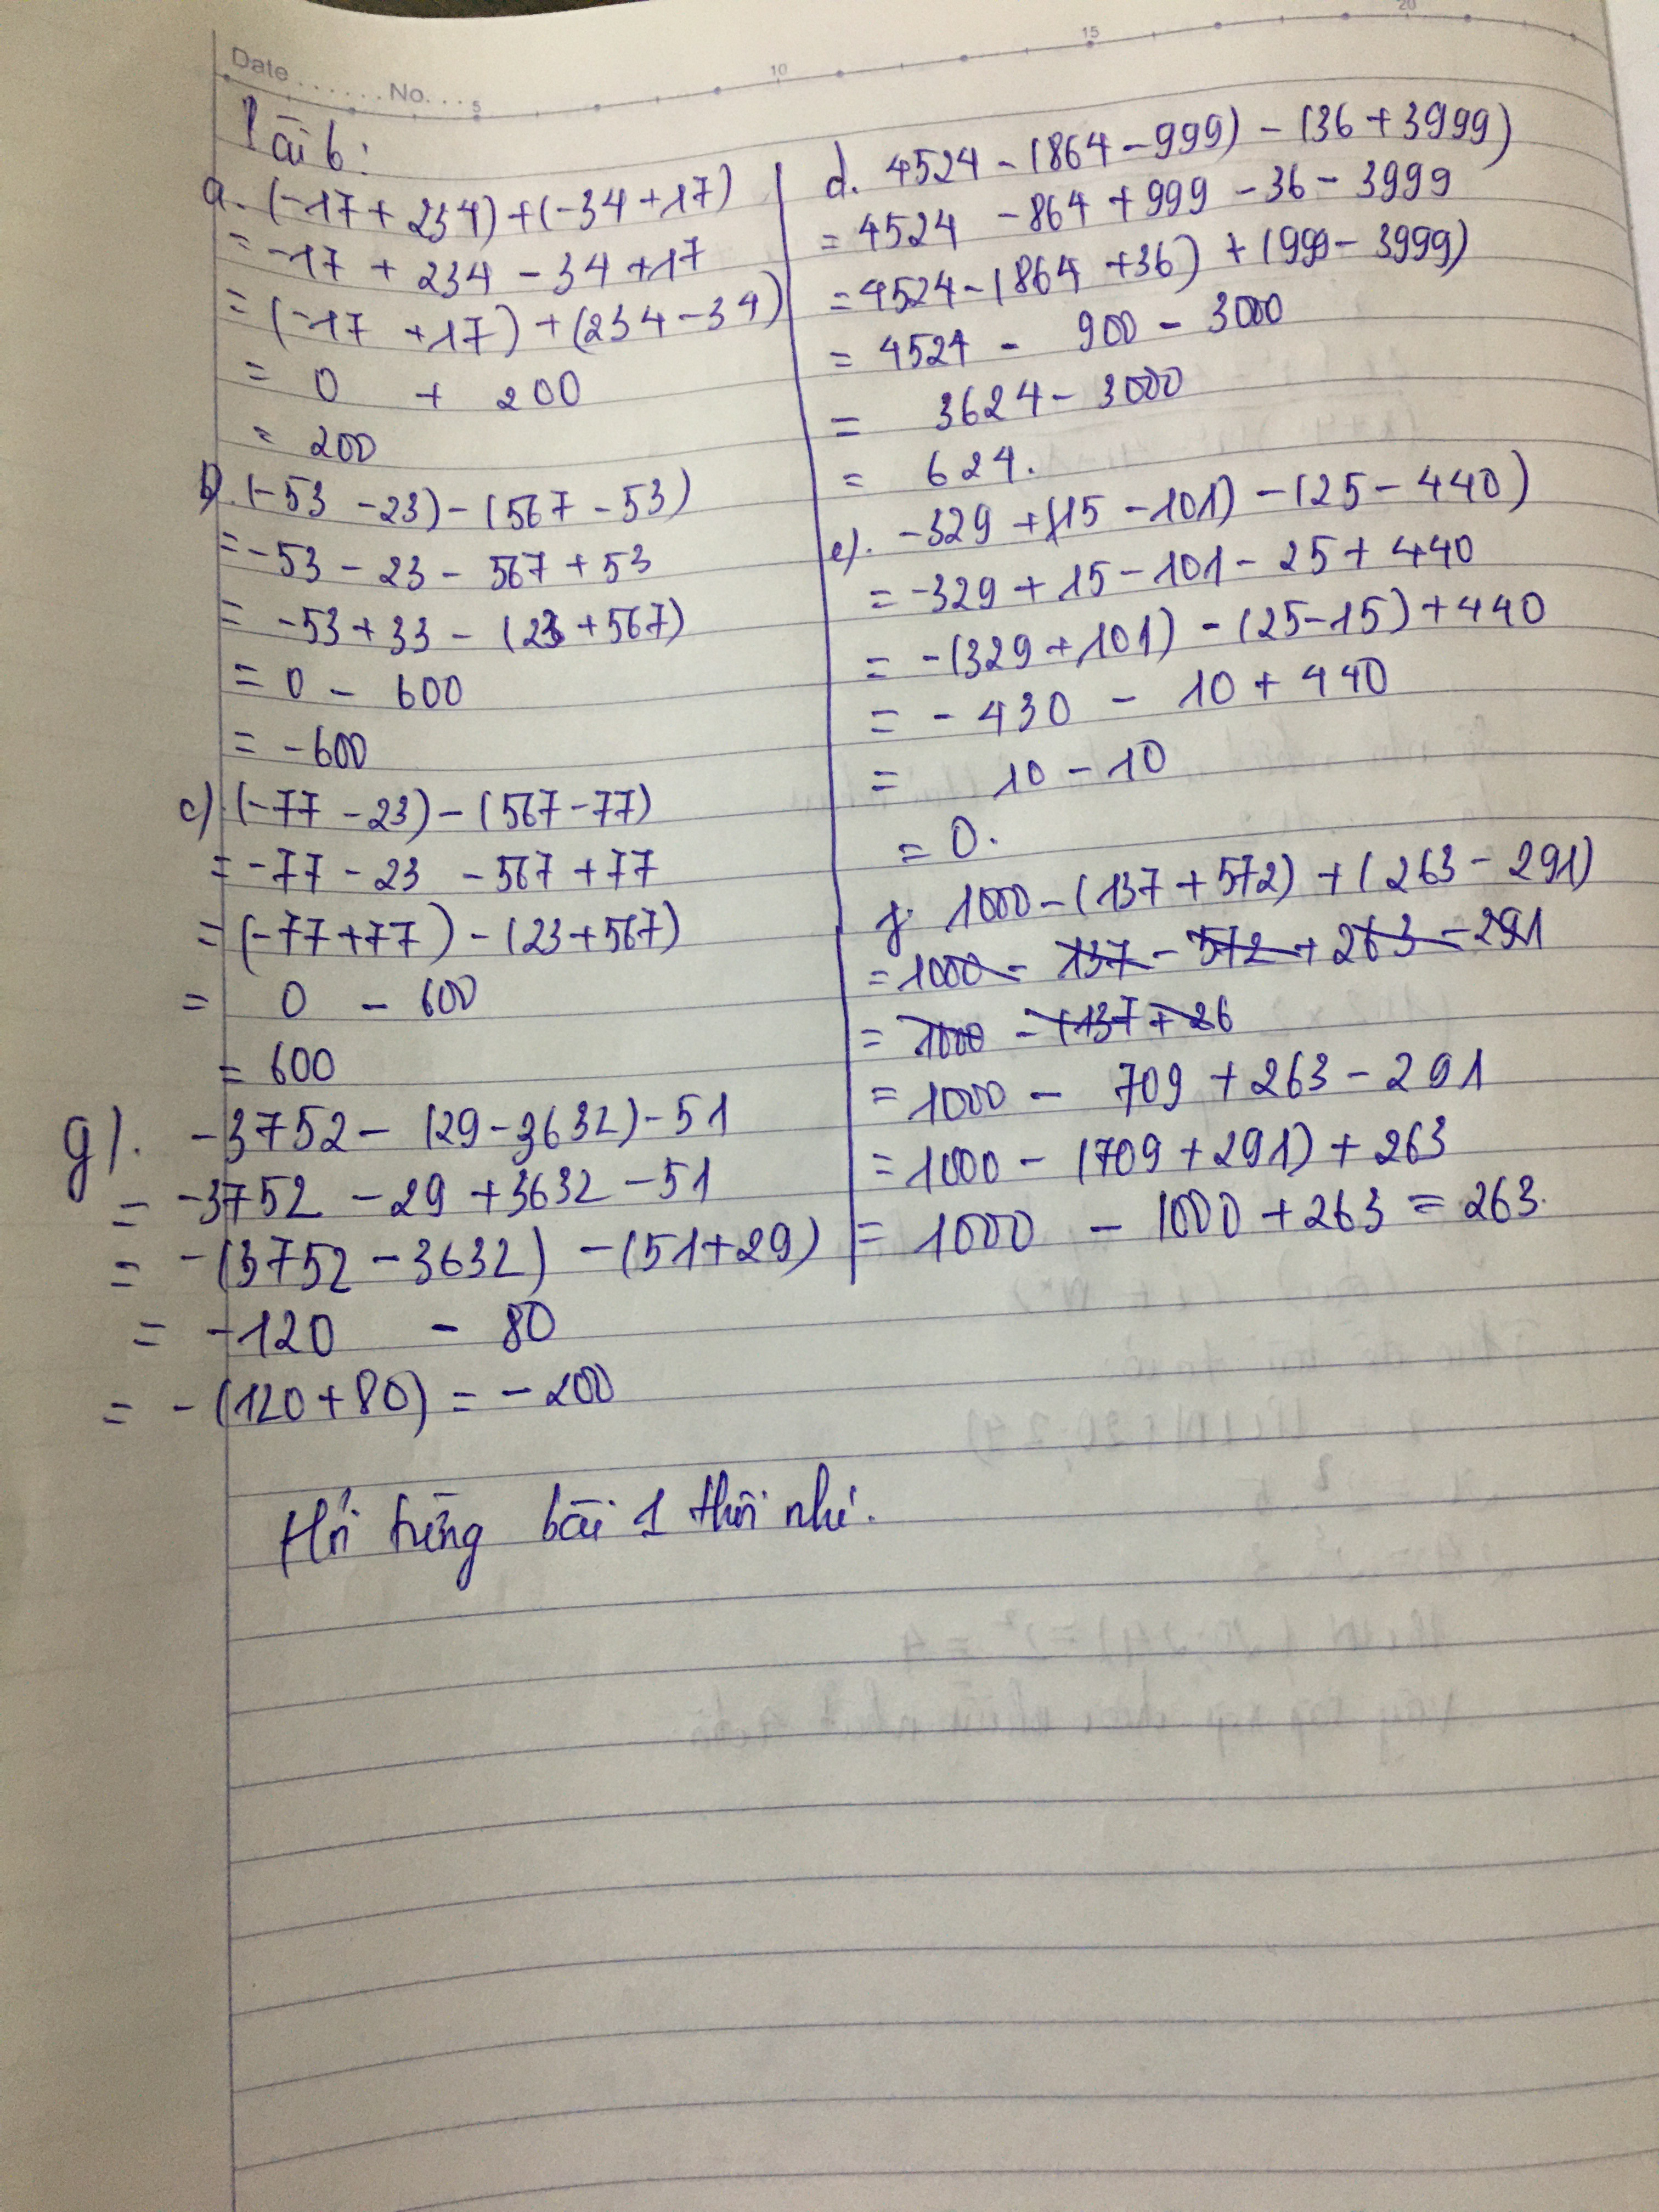 Date ...... No. ...
5 10 15 20
Bài 6:
a. (-17 + 234) + (-34 + 17)
= -17 + 234 - 34 + 17
= (-17 + 17) + (234 - 34)
= 0 + 200
= 200
b). (-53 - 23) - (567 - 53)
= -53 - 23 - 567 + 53
= -53 + 33 - (23 + 567)
= 0 - 600
= -600
c) (-77 - 23) - (567 - 77)
= -77 - 23 - 567 + 77
= (-77 + 77) - (23 + 567)
= 0 - 600
= 600
g). -3752 - (29 - 3632) - 51
= -3752 - 29 + 3632 - 51
= -(3752 - 3632) - (51 + 29)
= -120 - 80
= -(120 + 80) = -200
d. 4524 - (864 - 999) - (36 + 3999)
= 4524 - 864 + 999 - 36 - 3999
= 4524 - (864 + 36) + (999 - 3999)
= 4524 - 900 - 3000
= 3624 - 3000
= 624.
e). -329 + (15 - 101) - (25 - 440)
= -329 + 15 - 101 - 25 + 440
= -(329 + 101) - (25 - 15) + 440
= -430 - 10 + 440
= 10 - 10
= 0.
f. 1000 - (137 + 572) + (263 - 291)
= 1000 - 137 - 572 + 263 - 291
= 1000 - (137 + 26
= 1000 - 709 + 263 - 291
= 1000 - (709 + 291) + 263
= 1000 - 1000 + 263 = 263.
Hỏi từng bài 1 thôi nhé.